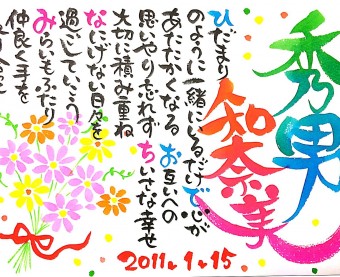 秀男
知奈美
ひだまり
のように一緒にいるだけで心が
あたたかくなる お互いへの
思いやり忘れず ちいさな幸せ
大切に積み重ね
なにげない日々を
過ごしていこう
みらいもふたり
仲良く手を
2011.1.15